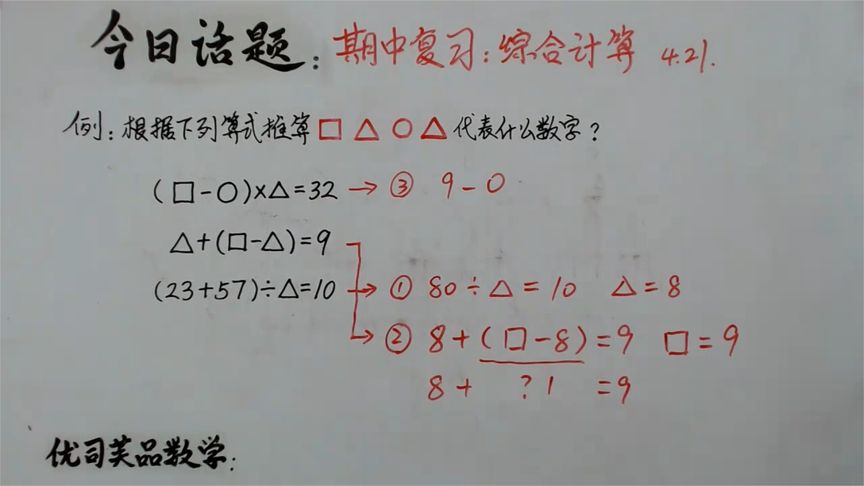 今日话题：期中复习：综合计算 4.21.
例：根据下列算式推算□ △ ○ △代表什么数字？
(□-○)×△=32 → ③ 9-○
△+(□-△)=9
(23+57)÷△=10 → ① 80÷△=10 △=8
② 8+(□-8)=9 □=9
8+ ?1 =9
优司芙品数学：